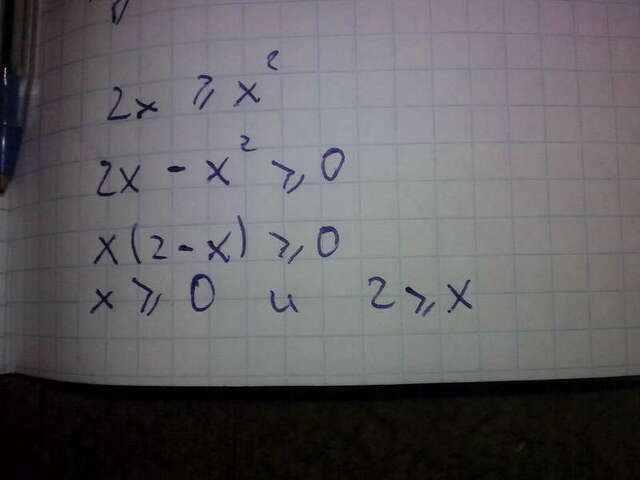 2x ⩾ x²
2x - x² ⩾ 0
x(2-x) ⩾ 0
x ⩾ 0 и 2 ⩾ x